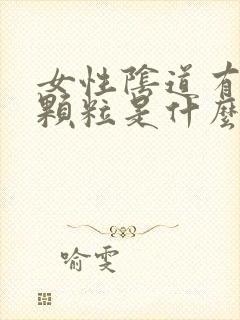 女性陰道有
顆粒是什麼
喻雯